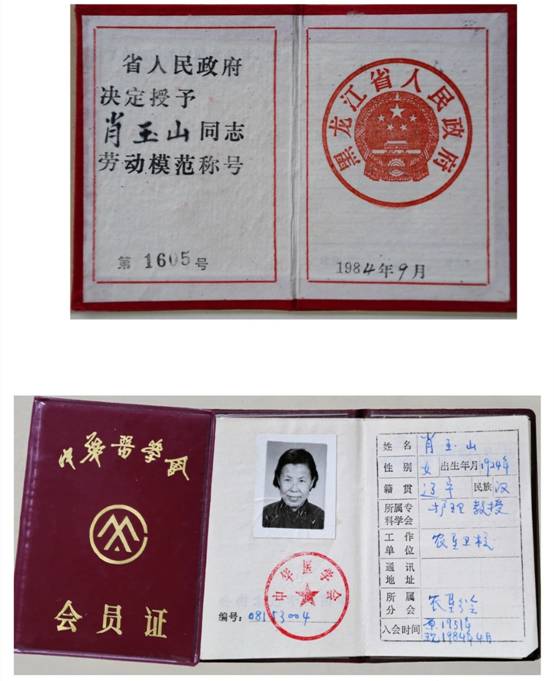 省人民政府
决定授予
肖玉山同志
劳动模范称号
第1605号
黑龙江省人民政府
1984年9月
中华医学会
会员证
中华医学会
编号：08153004
姓名 肖玉山
性别 女 出生年月 1924年
籍贯 辽宁 民族 汉
所属专科学会 护理 教授
工作单位 农垦卫校
通讯地址
所属分会 农垦分会
入会时间 原1951年
现1984年4月